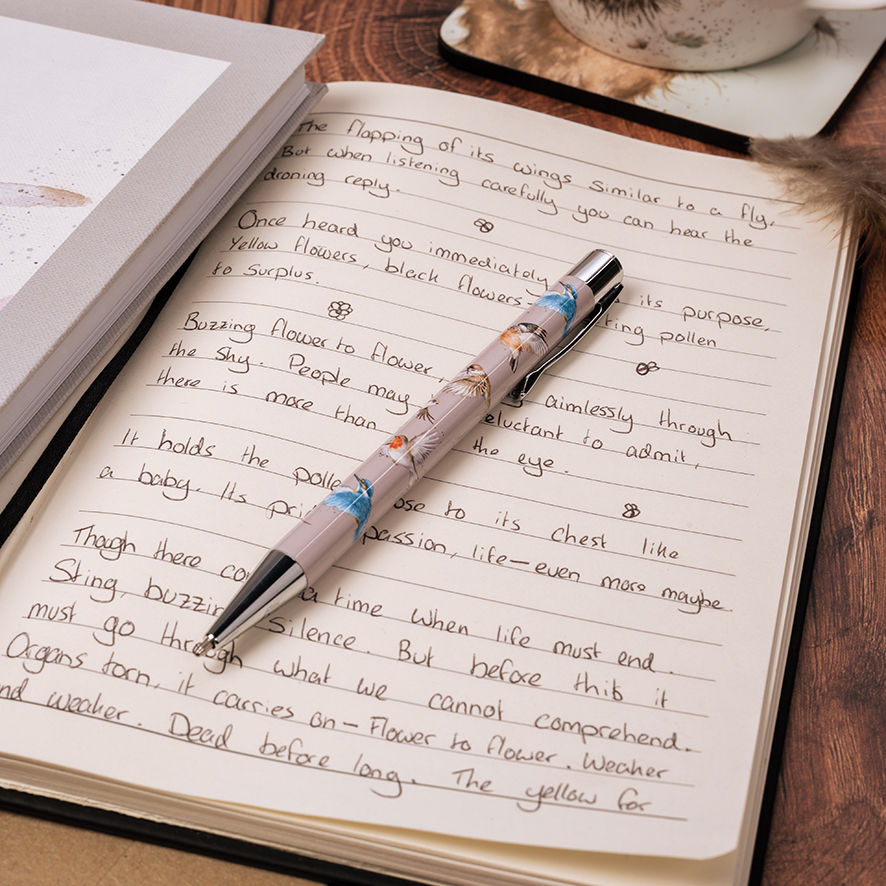 The flapping of its wings similar to a fly,
But when listening carefully you can hear the
droning reply.
Once heard you immediately its purpose,
Yellow flowers, black flowers ting pollen
to surplus.
Buzzing flower to flower, aimlessly through
the sky. People may eluctant to admit,
there is more than the eye.
It holds the polle ose to its chest like
a baby. Its pri passion, life—even more maybe.
Though there co a time when life must end.
Sting, buzzin Silence. But before this it
must go through what we cannot comprehend.
Organs torn, it carries on— Flower to flower. Weaker
nd weaker. Dead before long. The yellow for